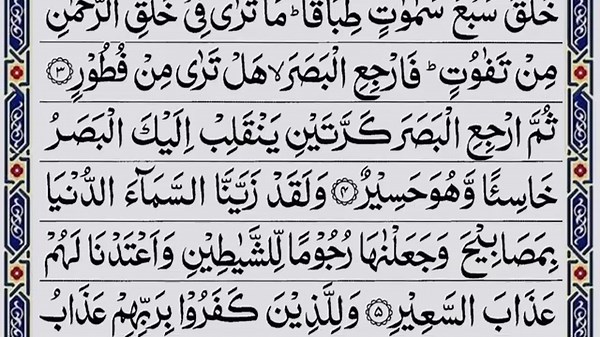 خَلَقَ سَبْعَ سَمٰوٰتٍ طِبَاقًا ؕ مَا تَرٰى فِىْ خَلْقِ الرَّحْمٰنِ
مِنْ تَفٰوُتٍ ؕ فَارْجِعِ الْبَصَرَ ۙ هَلْ تَرٰى مِنْ فُطُوْرٍ ﴿۳﴾
ثُمَّ ارْجِعِ الْبَصَرَ كَرَّتَيْنِ يَنْقَلِبْ اِلَيْكَ الْبَصَرُ
خَاسِئًا وَّهُوَ حَسِيْرٌ ﴿۴﴾ وَلَقَدْ زَيَّنَّا السَّمَآءَ الدُّنْيَا
بِمَصَابِيْحَ وَجَعَلْنٰهَا رُجُوْمًا لِّلشَّيٰطِيْنِ وَاَعْتَدْنَا لَهُمْ
عَذَابَ السَّعِيْرِ ﴿۵﴾ وَلِلَّذِيْنَ كَفَرُوْا بِرَبِّهِمْ عَذَابُ